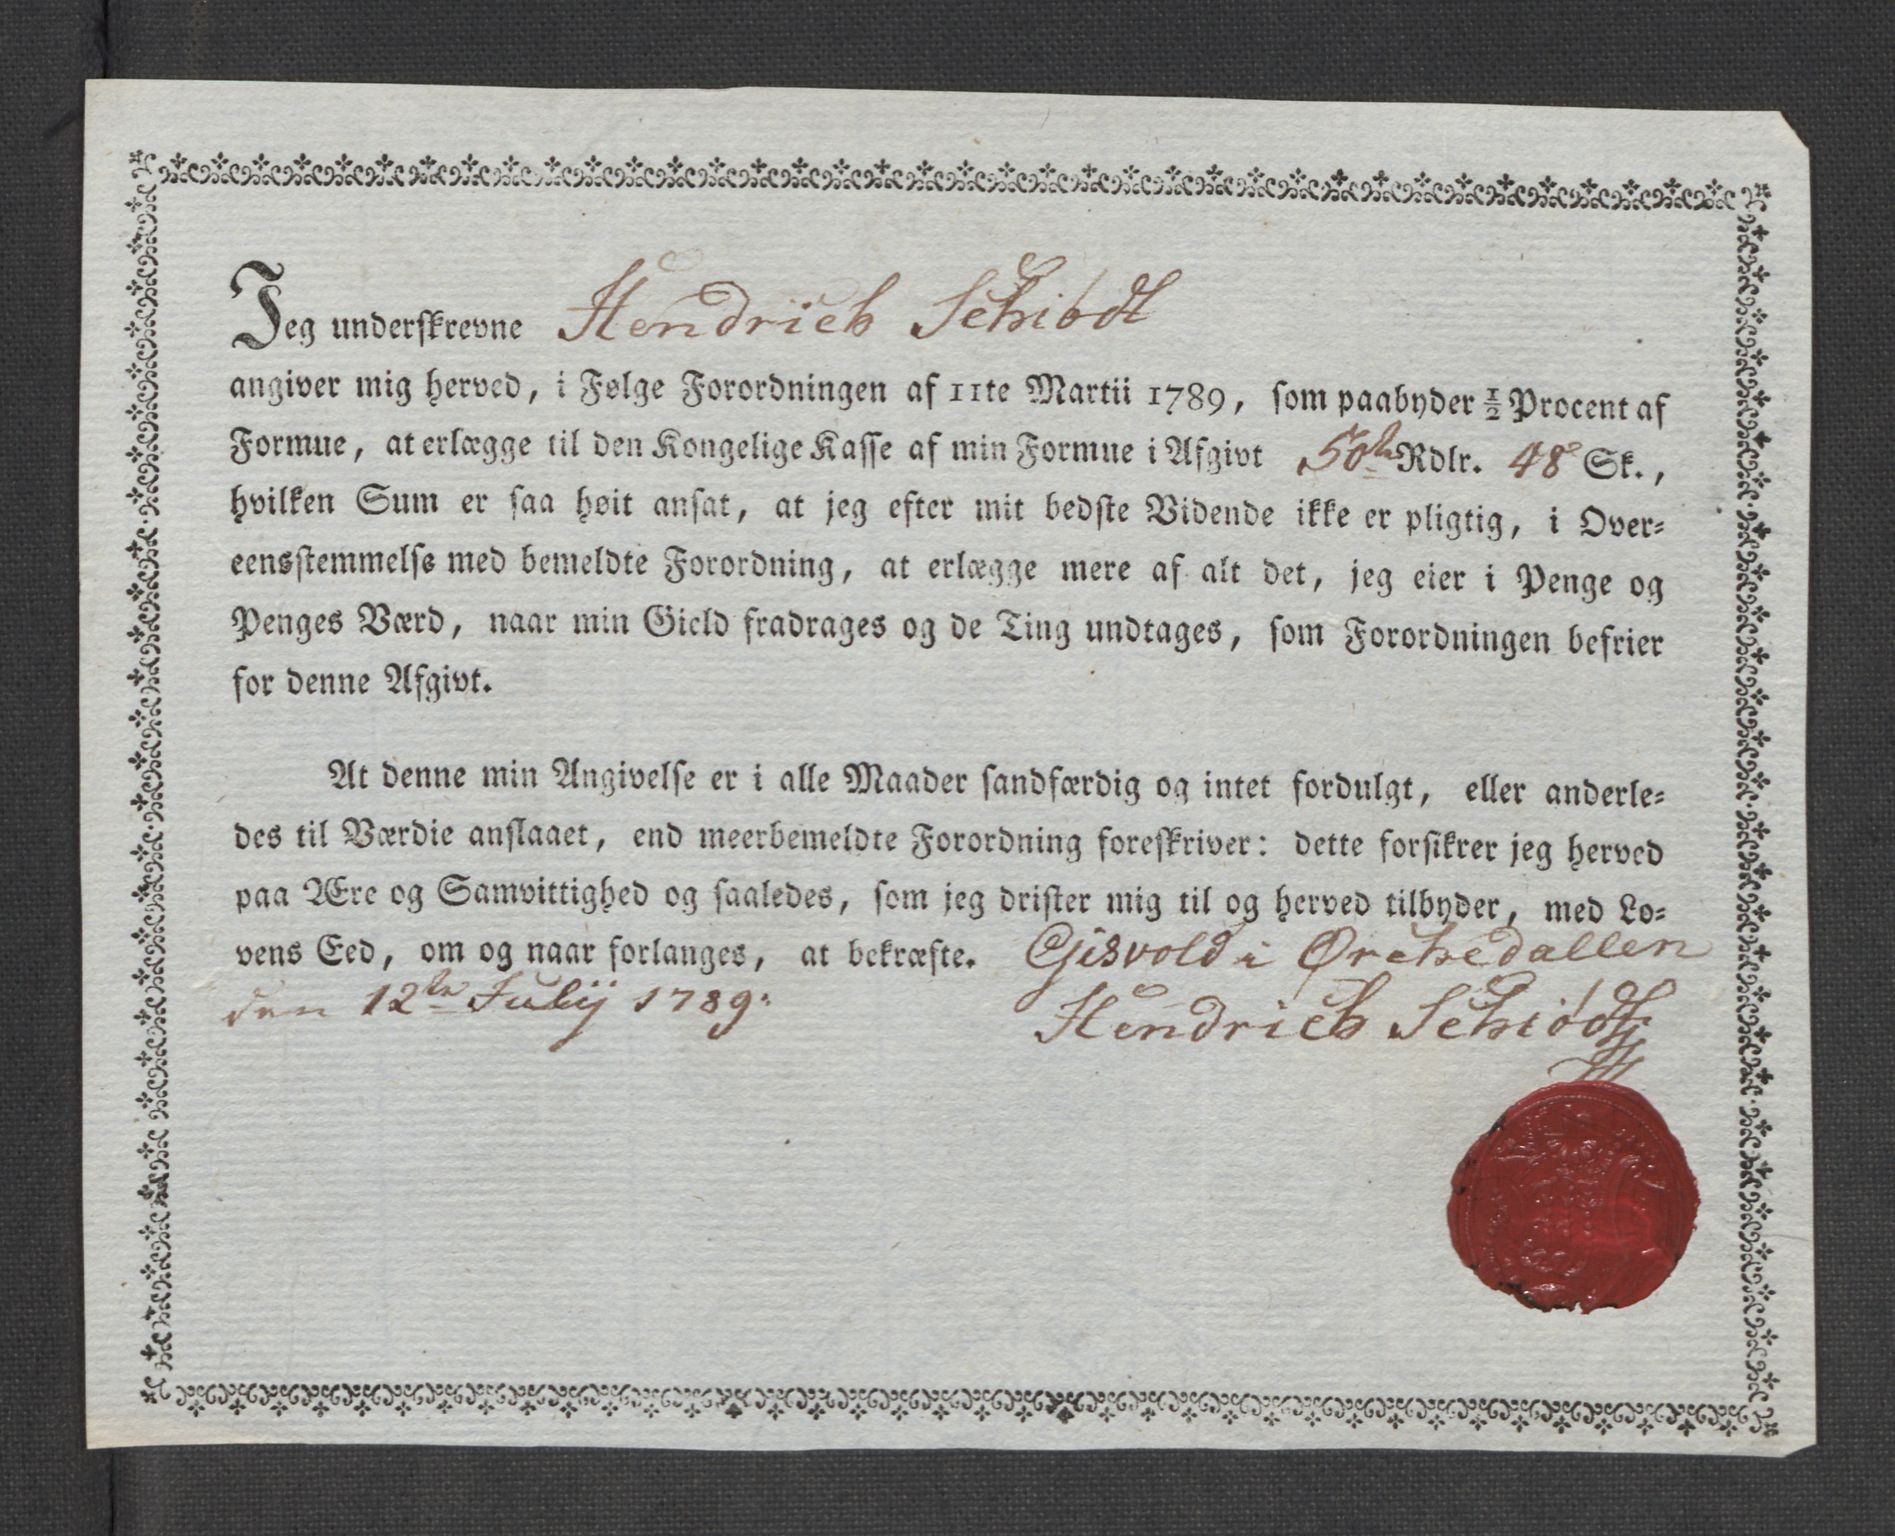 Jeg underskrevne Hendrich Schiødt
angiver mig herved, i Følge Forordningen af 11te Martii 1789, som paabyder ½ Procent af
Formue, at erlægge til den Kongelige Kasse af min Formue i Afgivt 50 Rdlr. 48 Sk.,
hvilken Sum er saa høit ansat, at jeg efter mit bedste Vidende ikke er pligtig, i Over-
eensstemmelse med bemeldte Forordning, at erlægge mere af alt det, jeg eier i Penge og
Penges Værd, naar min Gield fradrages og de Ting undtages, som Forordningen befrier
for denne Afgivt.
At denne min Angivelse er i alle Maader sandfærdig og intet fordulgt, eller anderle-
des til Værdie anslaaet, end meerbemeldte Forordning foreskriver: dette forsikrer jeg herved
paa Ære og Samvittighed og saaledes, som jeg drister mig til og herved tilbyder, med Lo-
vens Eed, om og naar forlanges, at bekræfte. Gisvold i Ørchedallen
den 12te Julij 1789.
Hendrich Schiødt